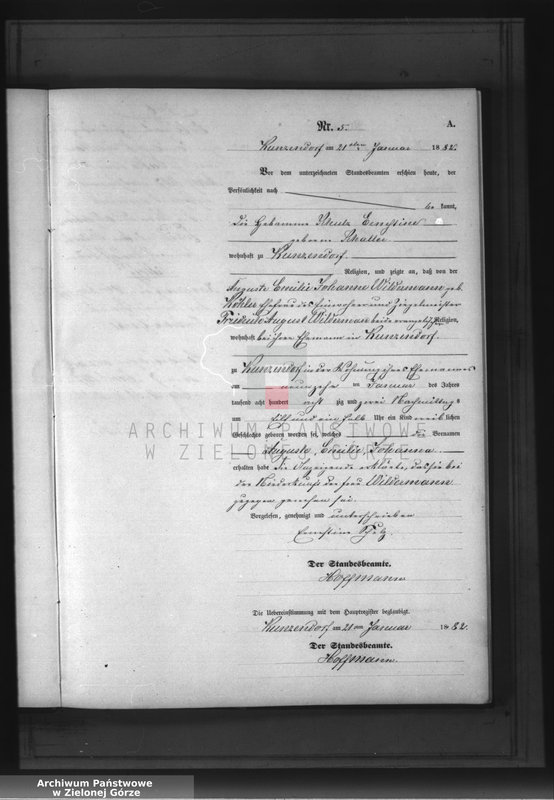 Nr. 5.
A.
Kunzendorf am 21 ten Januar 1882.
Vor dem unterzeichneten Standesbeamten erschien heute, der
Persönlichkeit nach
be kannt,
die Hebamme Ernestine
geborene
wohnhaft zu Kunzendorf
Religion, und zeigte an, daß von der
Auguste Emilie Johanne Wildemann geb.
Köhler Ehefrau des Einwohner und Ziegelmeister
August Wildemann beide evangelischer Religion,
wohnhaft bei ihrem Ehemann in Kunzendorf.
zu Kunzendorf in der Wohnung ihres Ehemannes
am neunzehn ten Januar des Jahres
tausend acht hundert acht zig und zwei Nachmittag s
um und ein halb Uhr ein Kind weib lichen
Geschlechts geboren worden sei, welches die Vornamen
Auguste, Emilie, Johanna
erhalten habe die Anzeigende erklärte, daß sie bei
der Niederkunft der Frau Wildemann
zugegen gewesen sei.
Vorgelesen, genehmigt und unterschrieben
Ernestine
Der Standesbeamte.
Hoffmann
Die Uebereinstimmung mit dem Hauptregister beglaubigt.
Kunzendorf am 21 ten Januar 1882.
Der Standesbeamte.
Hoffmann
ARCHIWUM PAŃSTWOWE
W ZIELONEJ GÓRZE
Archiwum Państwowe
w Zielonej Górze